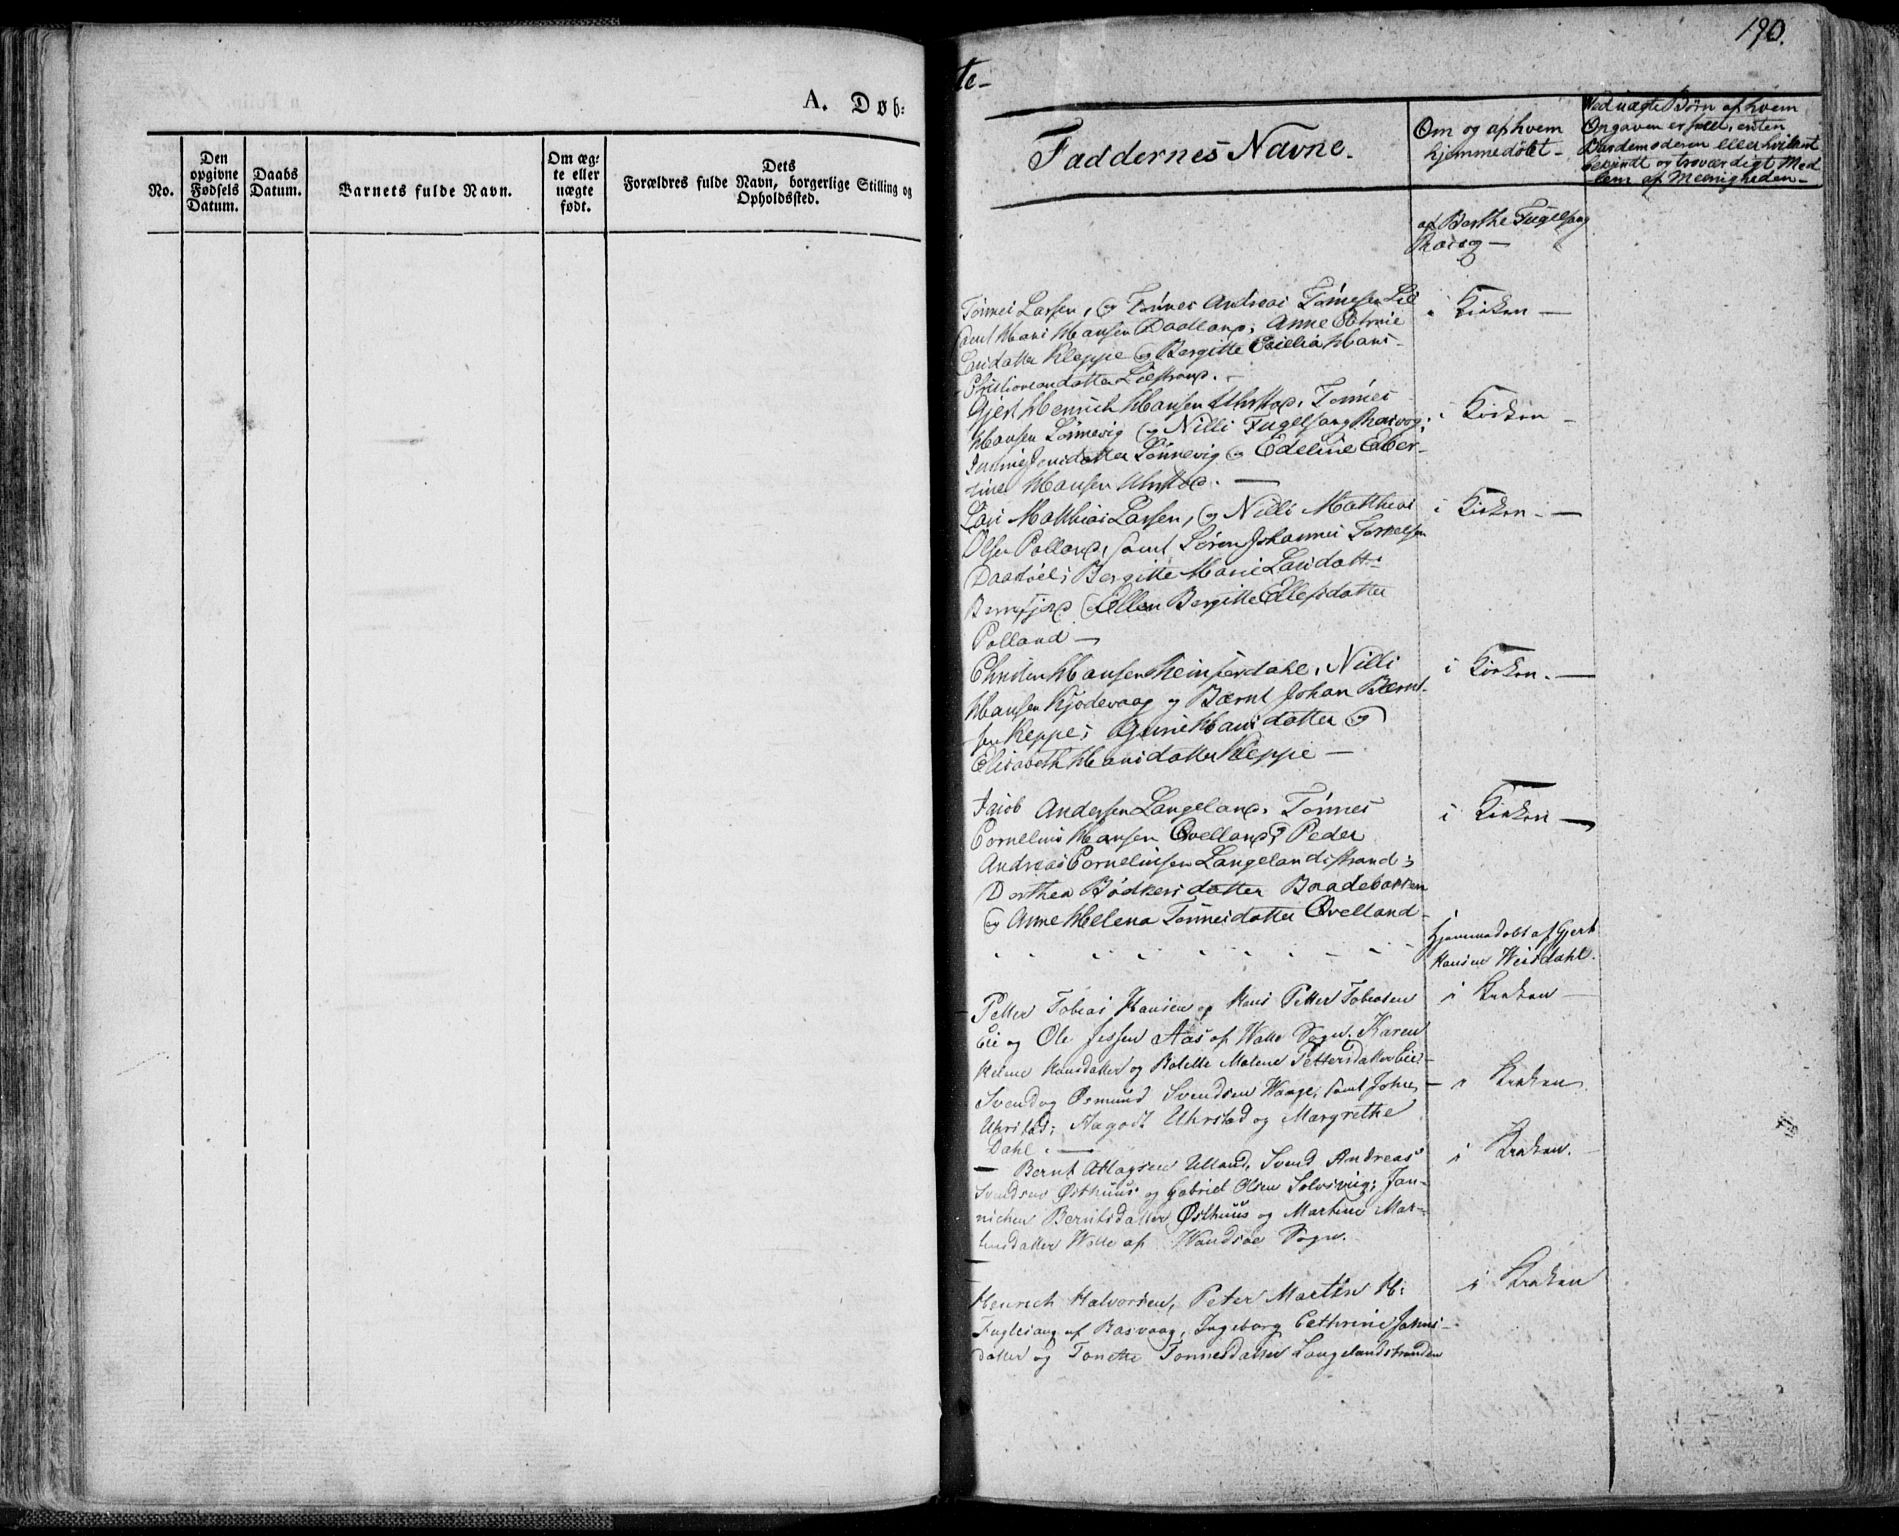 A. Døb:
No.
Den
opgivne
Fødsels
Datum.
Daabs
Datum.
Barnets fulde Navn.
Om æg-
te eller
uægte
født.
Dets
Forældres fulde Navn, borgerlige Stilling og
Opholdssted.
190.
te-
Faddernes Navne.
Om og af hvem
hjemmedøbt-
Ved uægte Børn af hvem
Opgaven er skeet, enten
Jordemoderen eller hvilket
bekjendt og troværdigt Med
lem af Menigheden-
af Berthe Fugelsang
Tønnes Larsen, og Tønnes Andreas Tønnesen
samt Hans Hansen Daaland; Anne
Larsdatter Kleppe og Bergitte Cecilia Hans
i Kirken -
Gjert Henrich Hansen Uhrstad, Tønnes
Hansen Lønnevig og Nilli Fugelsang Rasvog;
Jensdatter Lønnevig og Edeline Eber-
tine Hansen Uhrstad. -
i Kirken -
Lars Mathias Larsen, og Nilli Mathias
Olsen Polland, samt Søren Johannes
Bergitte Marie Larsdatt:
Ellen Bergitte Ellefsdatter
Polland -
i Kirken - -
Christen Hansen, Nilli
Hansen Kjødevaag og Bærnt Johan Bernt-
sen Kleppe; Gurine Hansdatter og
Elisabeth Hansdatter Kleppe -
i Kirken. -
Jacob Andersen Langeland, Tønnes
Cornelius Hansen Qvelland, Peder
Andreas Cornelius­en Langelandsstrand;
Dorthea Bødkersdatter Baadebakken
og Anne Helena Tønnesdatter Qvelland -
i Kirken -
hjemmedøbt af Gjert
Hansen Weisdahl.
Petter Tobias Hansen og Hans Petter Tobiasen
Eie og Ole Jessen Aas af Walle Sogn. Karen
Helene Hansdatter og Bolette Malene Pettersdatter Eie -
i Kirken -
Svend og Osmund Svendsen Waage, samt John
Uhrstad; Aagodt Uhrstad og Margrethe
Dahl. -
i Kirken.
- Bernt Atlagsen Ulland, Svend Andreas
Svendsen Østhuus og Gabriel Olsen Solsvig; Jan-
nichen Berntsdatter Østhuus og Martine Mar-
tinsdatter Walle af Wandsøe Sogn.
i Kirken.
Henrich Halvorsen, Peter Martin H:
Fuglesang af Rasvaag, Ingeborg Cathrine Johns-
datter og Tonette Tønnesdatter Langelandstranden
i Kirken